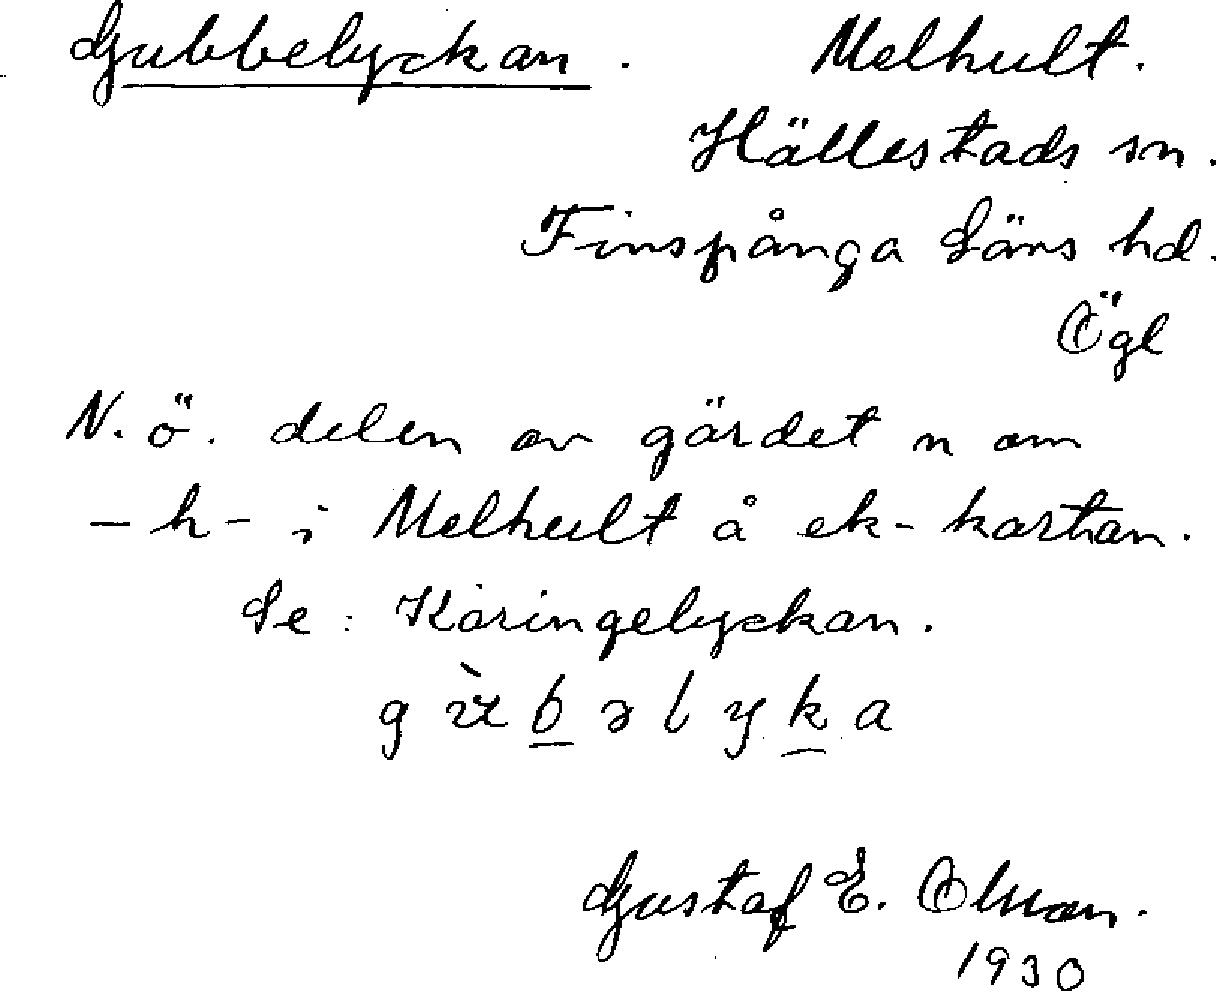 Gubbelyckan. Melhult.
Hällestads sn.
Finspånga läns hd.
Ögl
N. ö. delen av gärdet n om
–h– i Melhult å ek-kartan.
Se: Käringelyckan.
Gustaf E. Olsson.
1930